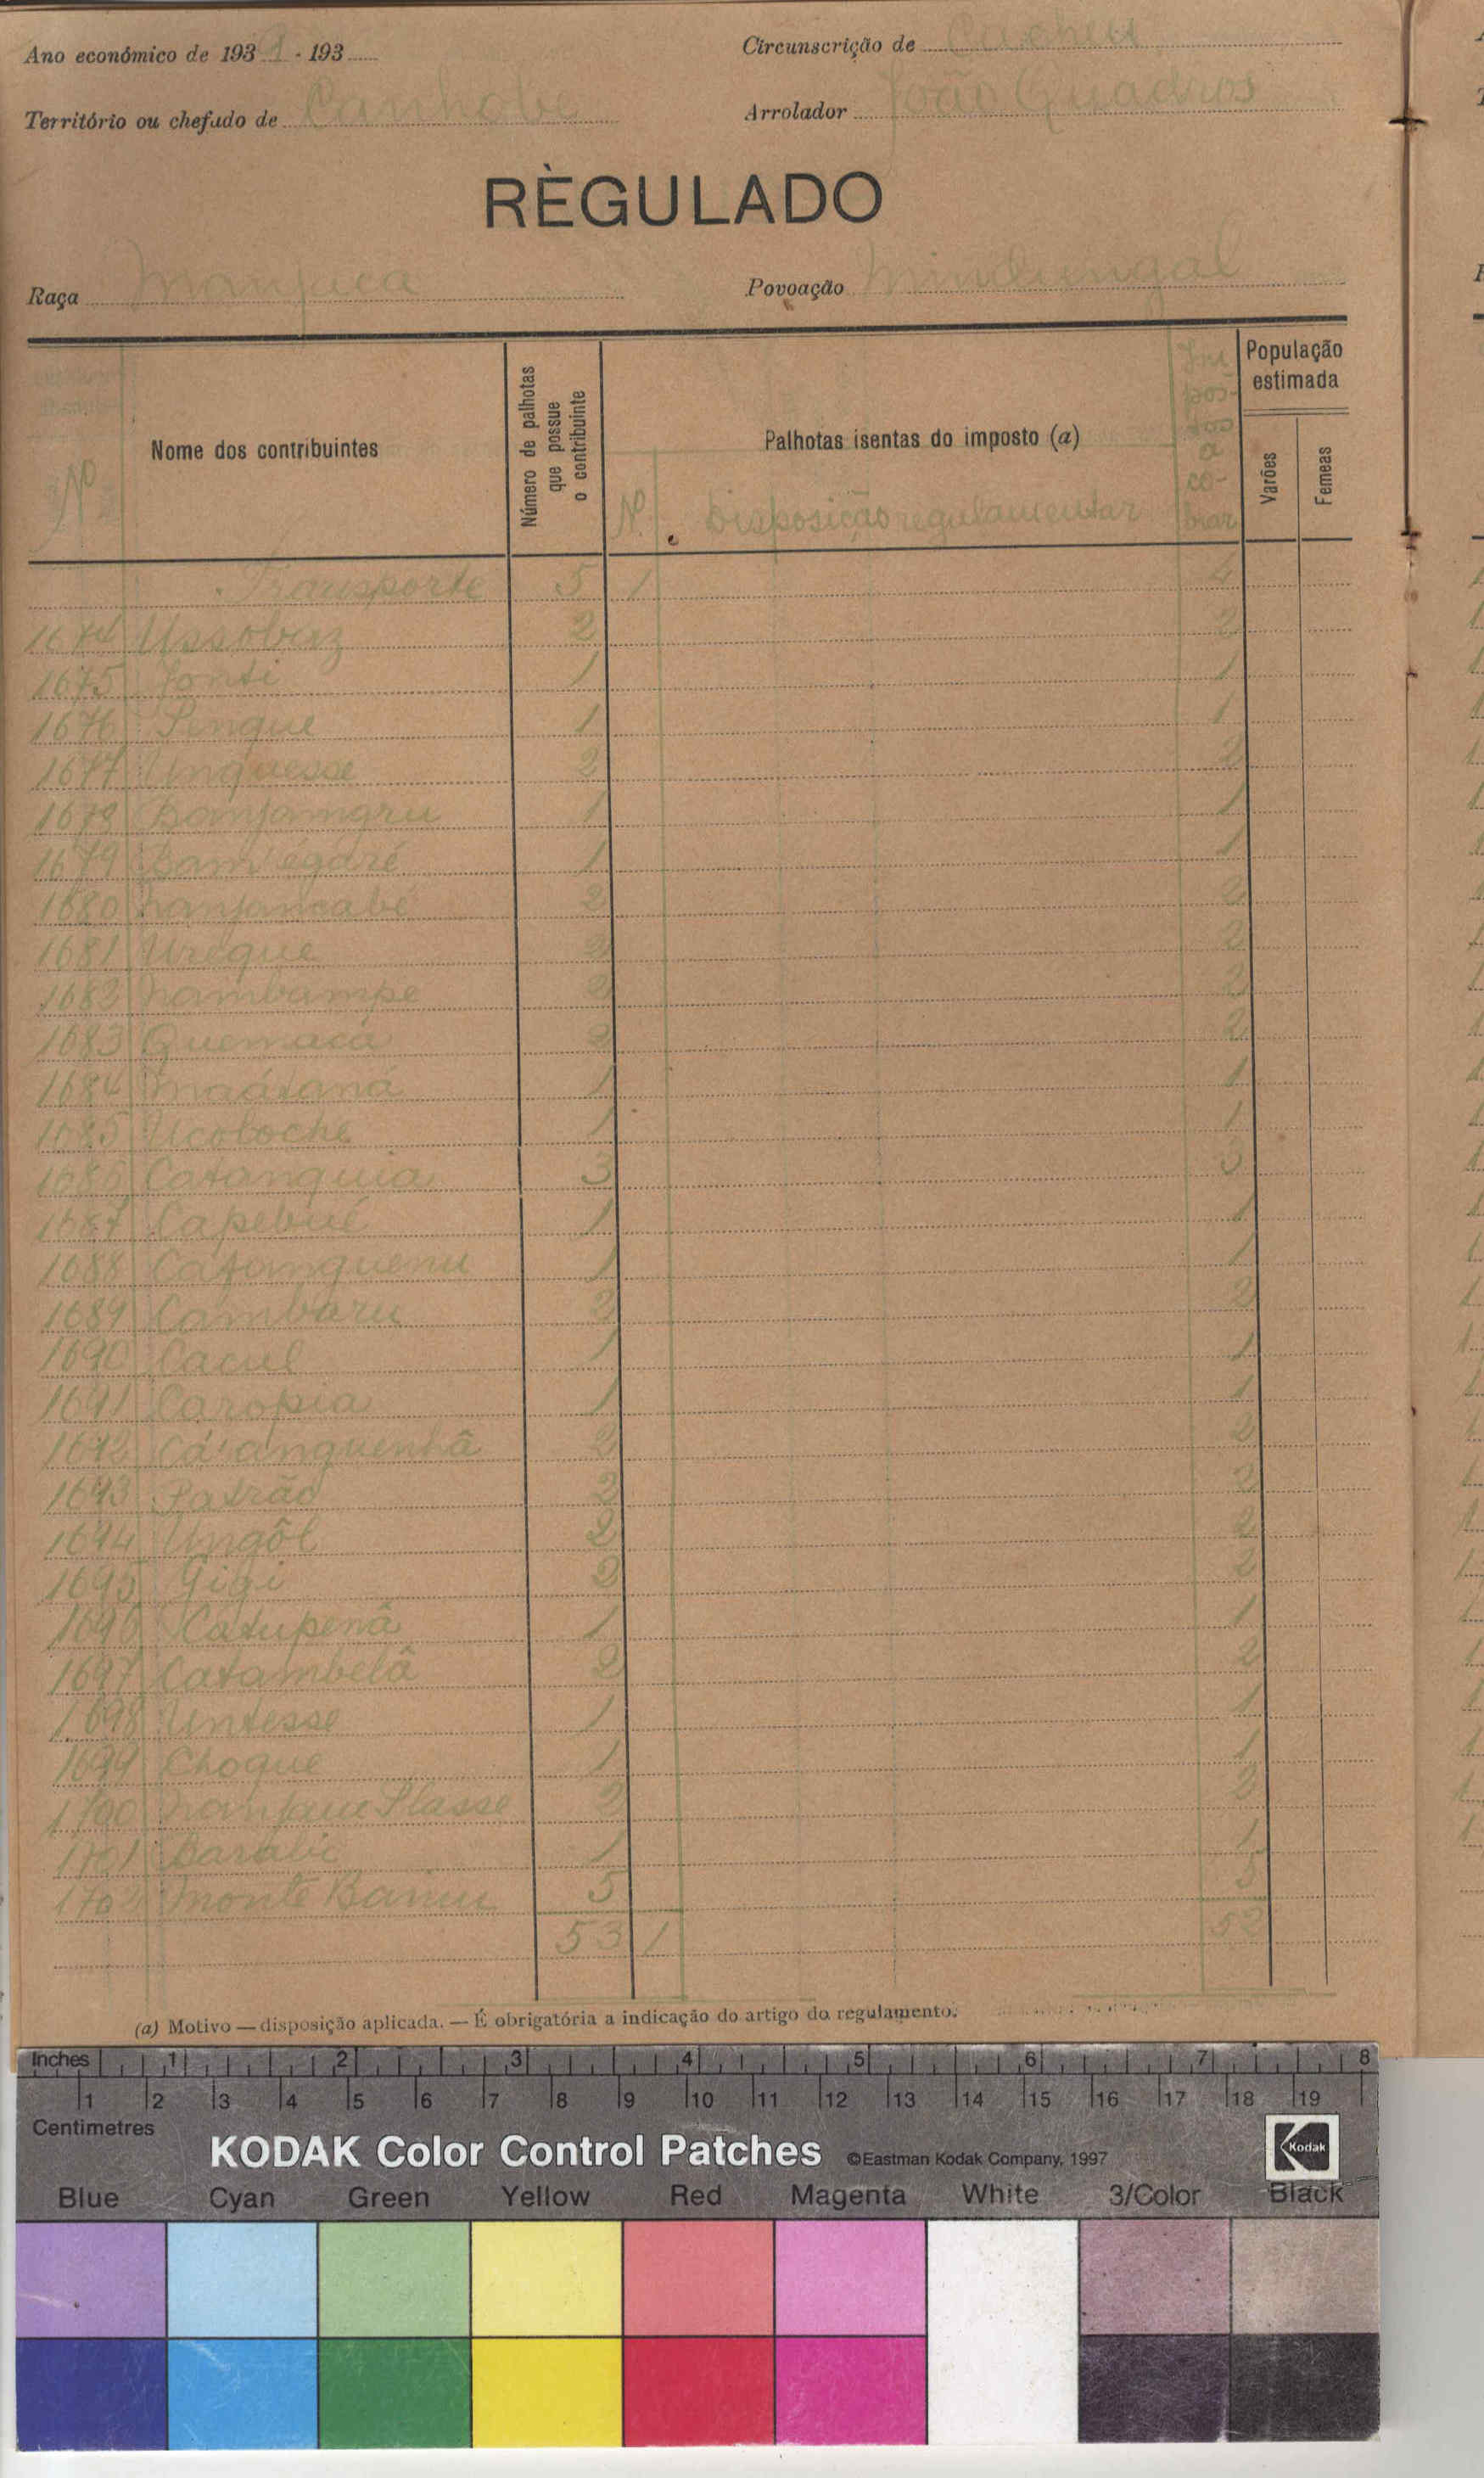 Ano económico de 193 1 - 193
Circunscrição de Cacheu
Território ou chefado de Canhobe
Arrolador João Quadros
RÈGULADO
Raça Manjaca
Povoação
Nº
Nome dos contribuintes
Número de palhotas que possue o contribuinte
Palhotas isentas do imposto (a)
N. Disposição regulamentar
Im pos- tos a co- brar
População estimada
Varões
Femeas
Transporte 5 1 4
1674 2 2
1675 Jonti 1 1
1676 Pengue 1 1
1677 Unquesse 2 2
1678 Banjamgru 1 1
1679 1 1
1680 Nanjancabé 2 2
1681 Ureque 2 2
1682 Nambampe 2 2
1683 Quemacá 2 2
1684 1 1
1685 Ucoloche 1 1
1686 Catanquia 3 3
1687 Capebué 1 1
1688 Catanguenu 1 1
1689 Cambaru 2 2
1690 Cacul 1 1
1691 Caropia 1 1
1692 Catanguenhâ 2 2
1693 Patrão 2 2
1694 Ungôl 2 2
1695 Gigi 2 2
1696 Catupenâ 1 1
1697 Catambelâ 2 2
1698 Untesse 1 1
1699 Choque 1 1
1700 2 2
1701 1 1
1702 5 5
53 1 52
(a) Motivo — disposição aplicada. — É obrigatória a indicação do artigo do regulamento.
Inches 1 2 3 4 5 6 7 8
1 2 3 4 5 6 7 8 9 10 11 12 13 14 15 16 17 18 19
Centimetres
KODAK Color Control Patches ©Eastman Kodak Company, 1997 Kodak
Blue Cyan Green Yellow Red Magenta White 3/Color Black